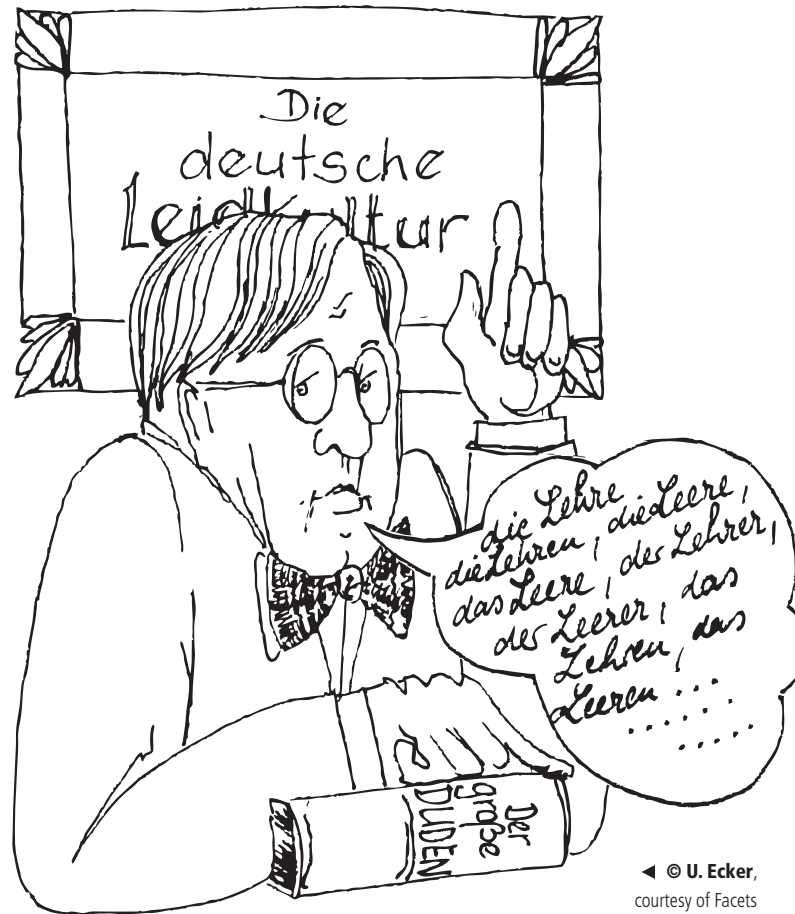 Die
deutsche
Leidkultur
die Lehre
die Lehren, die Leere,
das Leere, der Lehrer,
der Leerer, das
Lehren, das
Leeren ...
......
.....
Der
große
DUDEN
◄ © U. Ecker,
courtesy of Facets